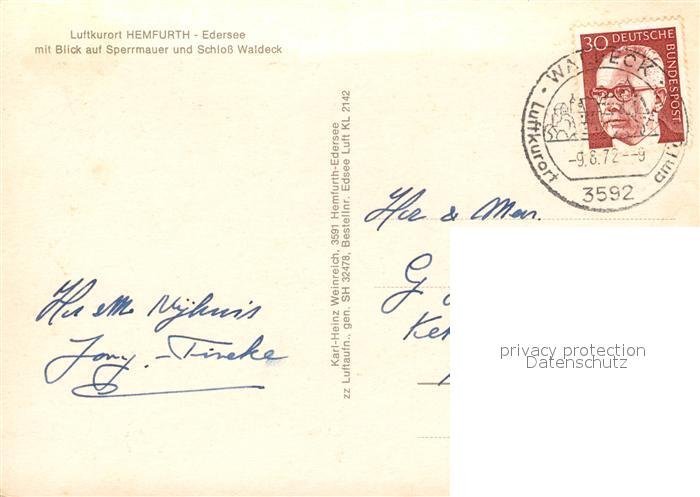 Luftkurort HEMFURTH - Edersee
mit Blick auf Sperrmauer und Schloß Waldeck
30 DEUTSCHE BUNDESPOST
WALDECK
-9.8.72--9
Luftkurort am
3592
Karl-Heinz Weinreich, 3591 Hemfurth-Edersee
zz Luftaufn., gen. SH 32478, Bestellnr. Edsee Luft KL 2142
G
privacy protection
Datenschutz
Nijhuis
Tineke